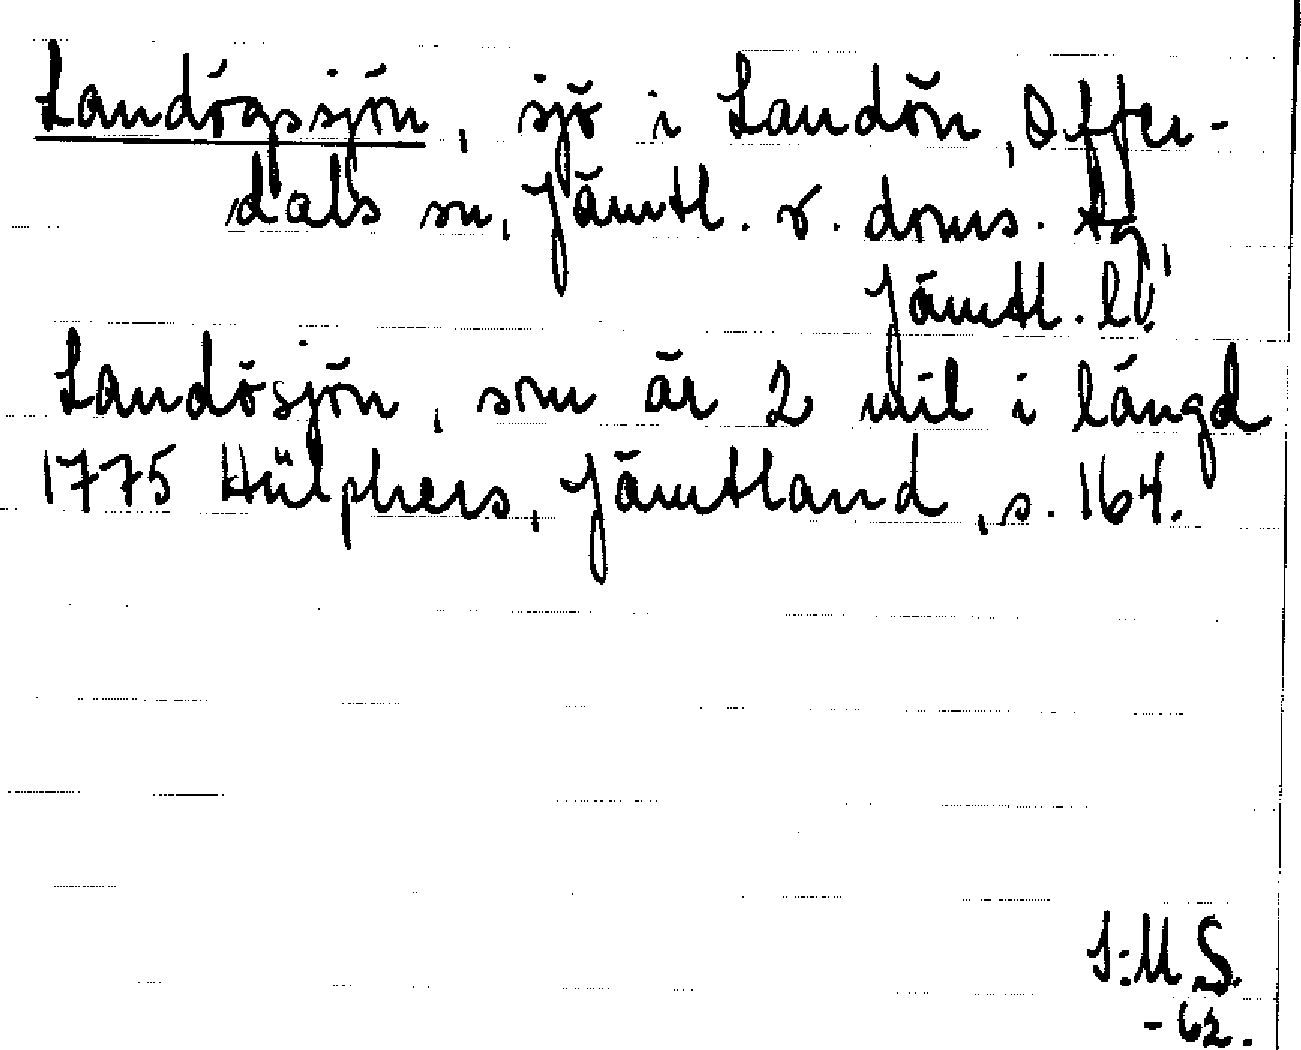 Landögssjön, sjö i Landön, Offer-
dals sn, Jämtl. v. doms. tg,
Jämtl. l.
Landösjön, som är 2 mil i längd
1775 Hülphers, Jämtland, s. 164.
I:M.S.
-62.